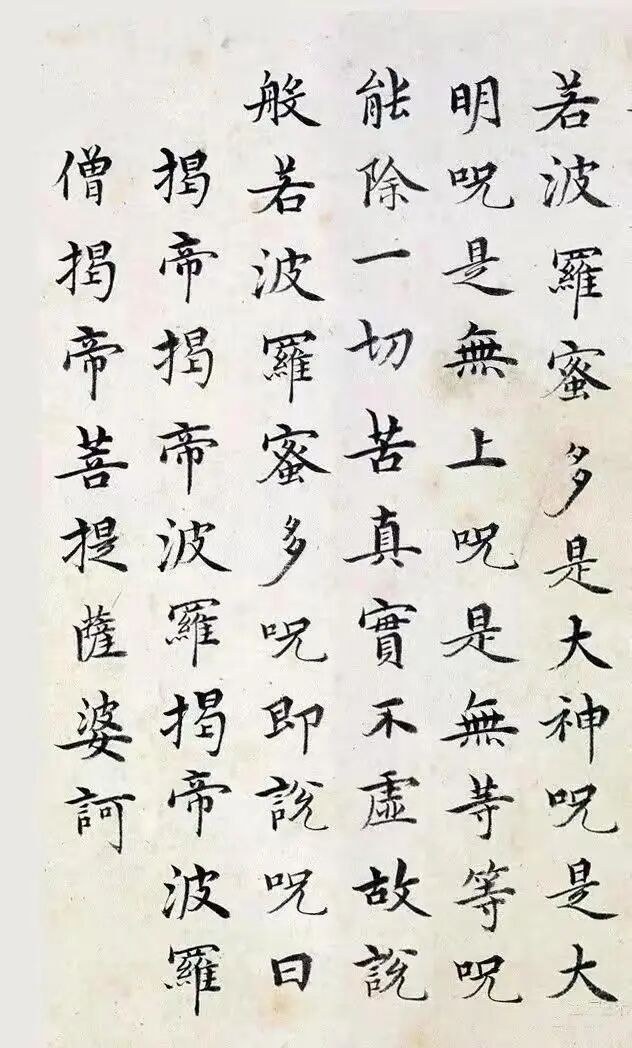 若波羅蜜多是大神呪是大
明呪是無上呪是無等等呪
能除一切苦真實不虛故說
般若波羅蜜多呪即說呪曰
揭帝揭帝波羅揭帝波羅
僧揭帝菩提薩婆訶